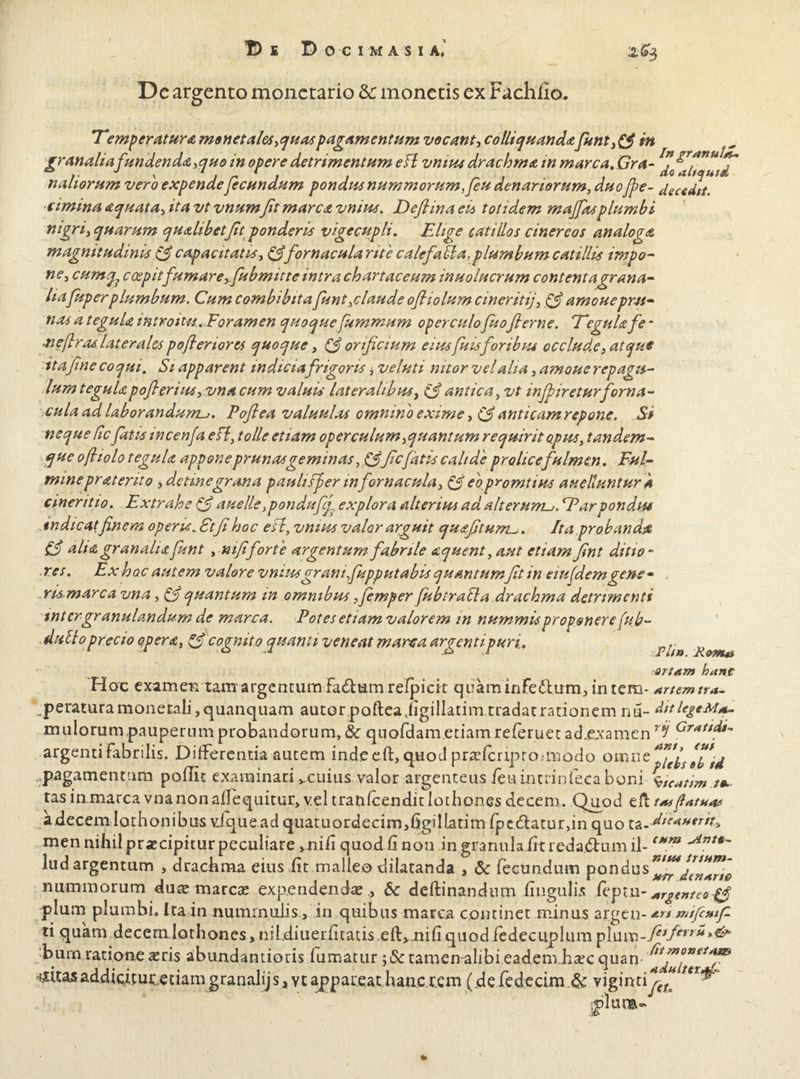 DE DOCIMASIA. 263
De argento monetario & monetis ex Fachsio.
Temperaturæ monetales, quas pagamentum vocant, colliquandæ sunt, & in
granalia fundendæ, quo in opere detrimentum est vnius drachmæ in marca. Gra-
naliorum vero expende secundum pondus nummorum, seu denariorum, duo spe-
cimina æquata, ita vt vnum sit marcæ vnius. Destina eis totidem massas plumbi
nigri, quarum quælibet sit ponderis vigecupli. Elige catillos cinereos analogæ
magnitudinis & capacitatis, & fornacula rite calefacta, plumbum catillis impo-
ne, cumq; cœpit fumare, submitte intra chartaceum inuolucrum contenta grana-
lia super plumbum. Cum combibita sunt, claude ostiolum cineritij, & amoue pru-
nas a tegulæ introitu. Foramen quoque summum operculo suo sterne. Tegulæ fe-
nestras laterales posteriores quoque, & orificium eius suis foribus occlude, atque
ita sine coqui. Si apparent indicia frigoris, veluti nitor vel alia, amoue repagu-
lum tegulæ posterius, vna cum valuis lateralibus, & antica, vt inspiretur forna-
cula ad laborandum. Postea valuulas omnino exime, & anticam repone. Si
neque sic satis incensa est, tolle etiam operculum, quantum requirit opus, tandem-
que ostiolo tegulæ appone prunas geminas, & sic satis calide prolice fulmen. Ful-
mine præterito, detine grana paulisper in fornacula, & eo promtius auelluntur à
cineritio. Extrahe & auelle, pondusq; explora alterius ad alterum. Par pondus
indicat finem operis. Et si hoc est, vnius valor arguit quæsitum. Ita probandæ
& aliæ granaliæ sunt, nisi forte argentum fabrile æquent, aut etiam sint ditio-
res. Ex hoc autem valore vnius grani, supputabis quantum sit in eiusdem gene-
ris marca vna, & quantum in omnibus, semper subtracta drachma detrimenti
inter granulandum de marca. Potes etiam valorem in nummis proponere sub-
ducto precio operæ, & cognito quanti veneat marca argenti puri.
In granula-
do aliquid
decedit.
Hoc examen tam argentum factum respicit quàm infectum, in tem-
peratura monetali, quanquam autor postea sigillatim tradat rationem nu-
mulorum pauperum probandorum, & quosdam etiam referuet ad examen
argenti fabrilis. Differentia autem inde est, quod præscripto modo omne
pagamentum possit examinari, cuius valor argenteus seu intrinseca boni-
tas in marca vna non assequitur, vel transcendit lothones decem. Quod est
à decem lothonibus vsque ad quatuordecim, sigillatim spectatur, in quo ta-
men nihil præcipitur peculiare, nisi quod si non in granula sit redactum il-
lud argentum, drachma eius sit malleo dilatanda, & secundum pondus
nummorum duæ marcæ expendendæ, & destinandum singulis septu-
plum plumbi. Ita in nummulis, in quibus marca continet minus argen-
ti quàm decem lothones, nil diuersitatis est, nisi quod sedecuplum plum-
bum ratione æris abundantioris sumatur; & tamen alibi eadem hæc quan-
titas addicitur etiam granalijs, vt appareat hanc rem (de sedecim & viginti
Plin. Romæ
artem hanc
artem tra-
dit lege Ma-
rij Gratidi-
ani, cui
plebs ob id
vicatim to-
tas statuas
dicauerit,
cum Anto-
nius trium-
uir denario
argenteo &
æri miscuis-
set ferrū, &
sit monetam
adulteras-
set.
plum-